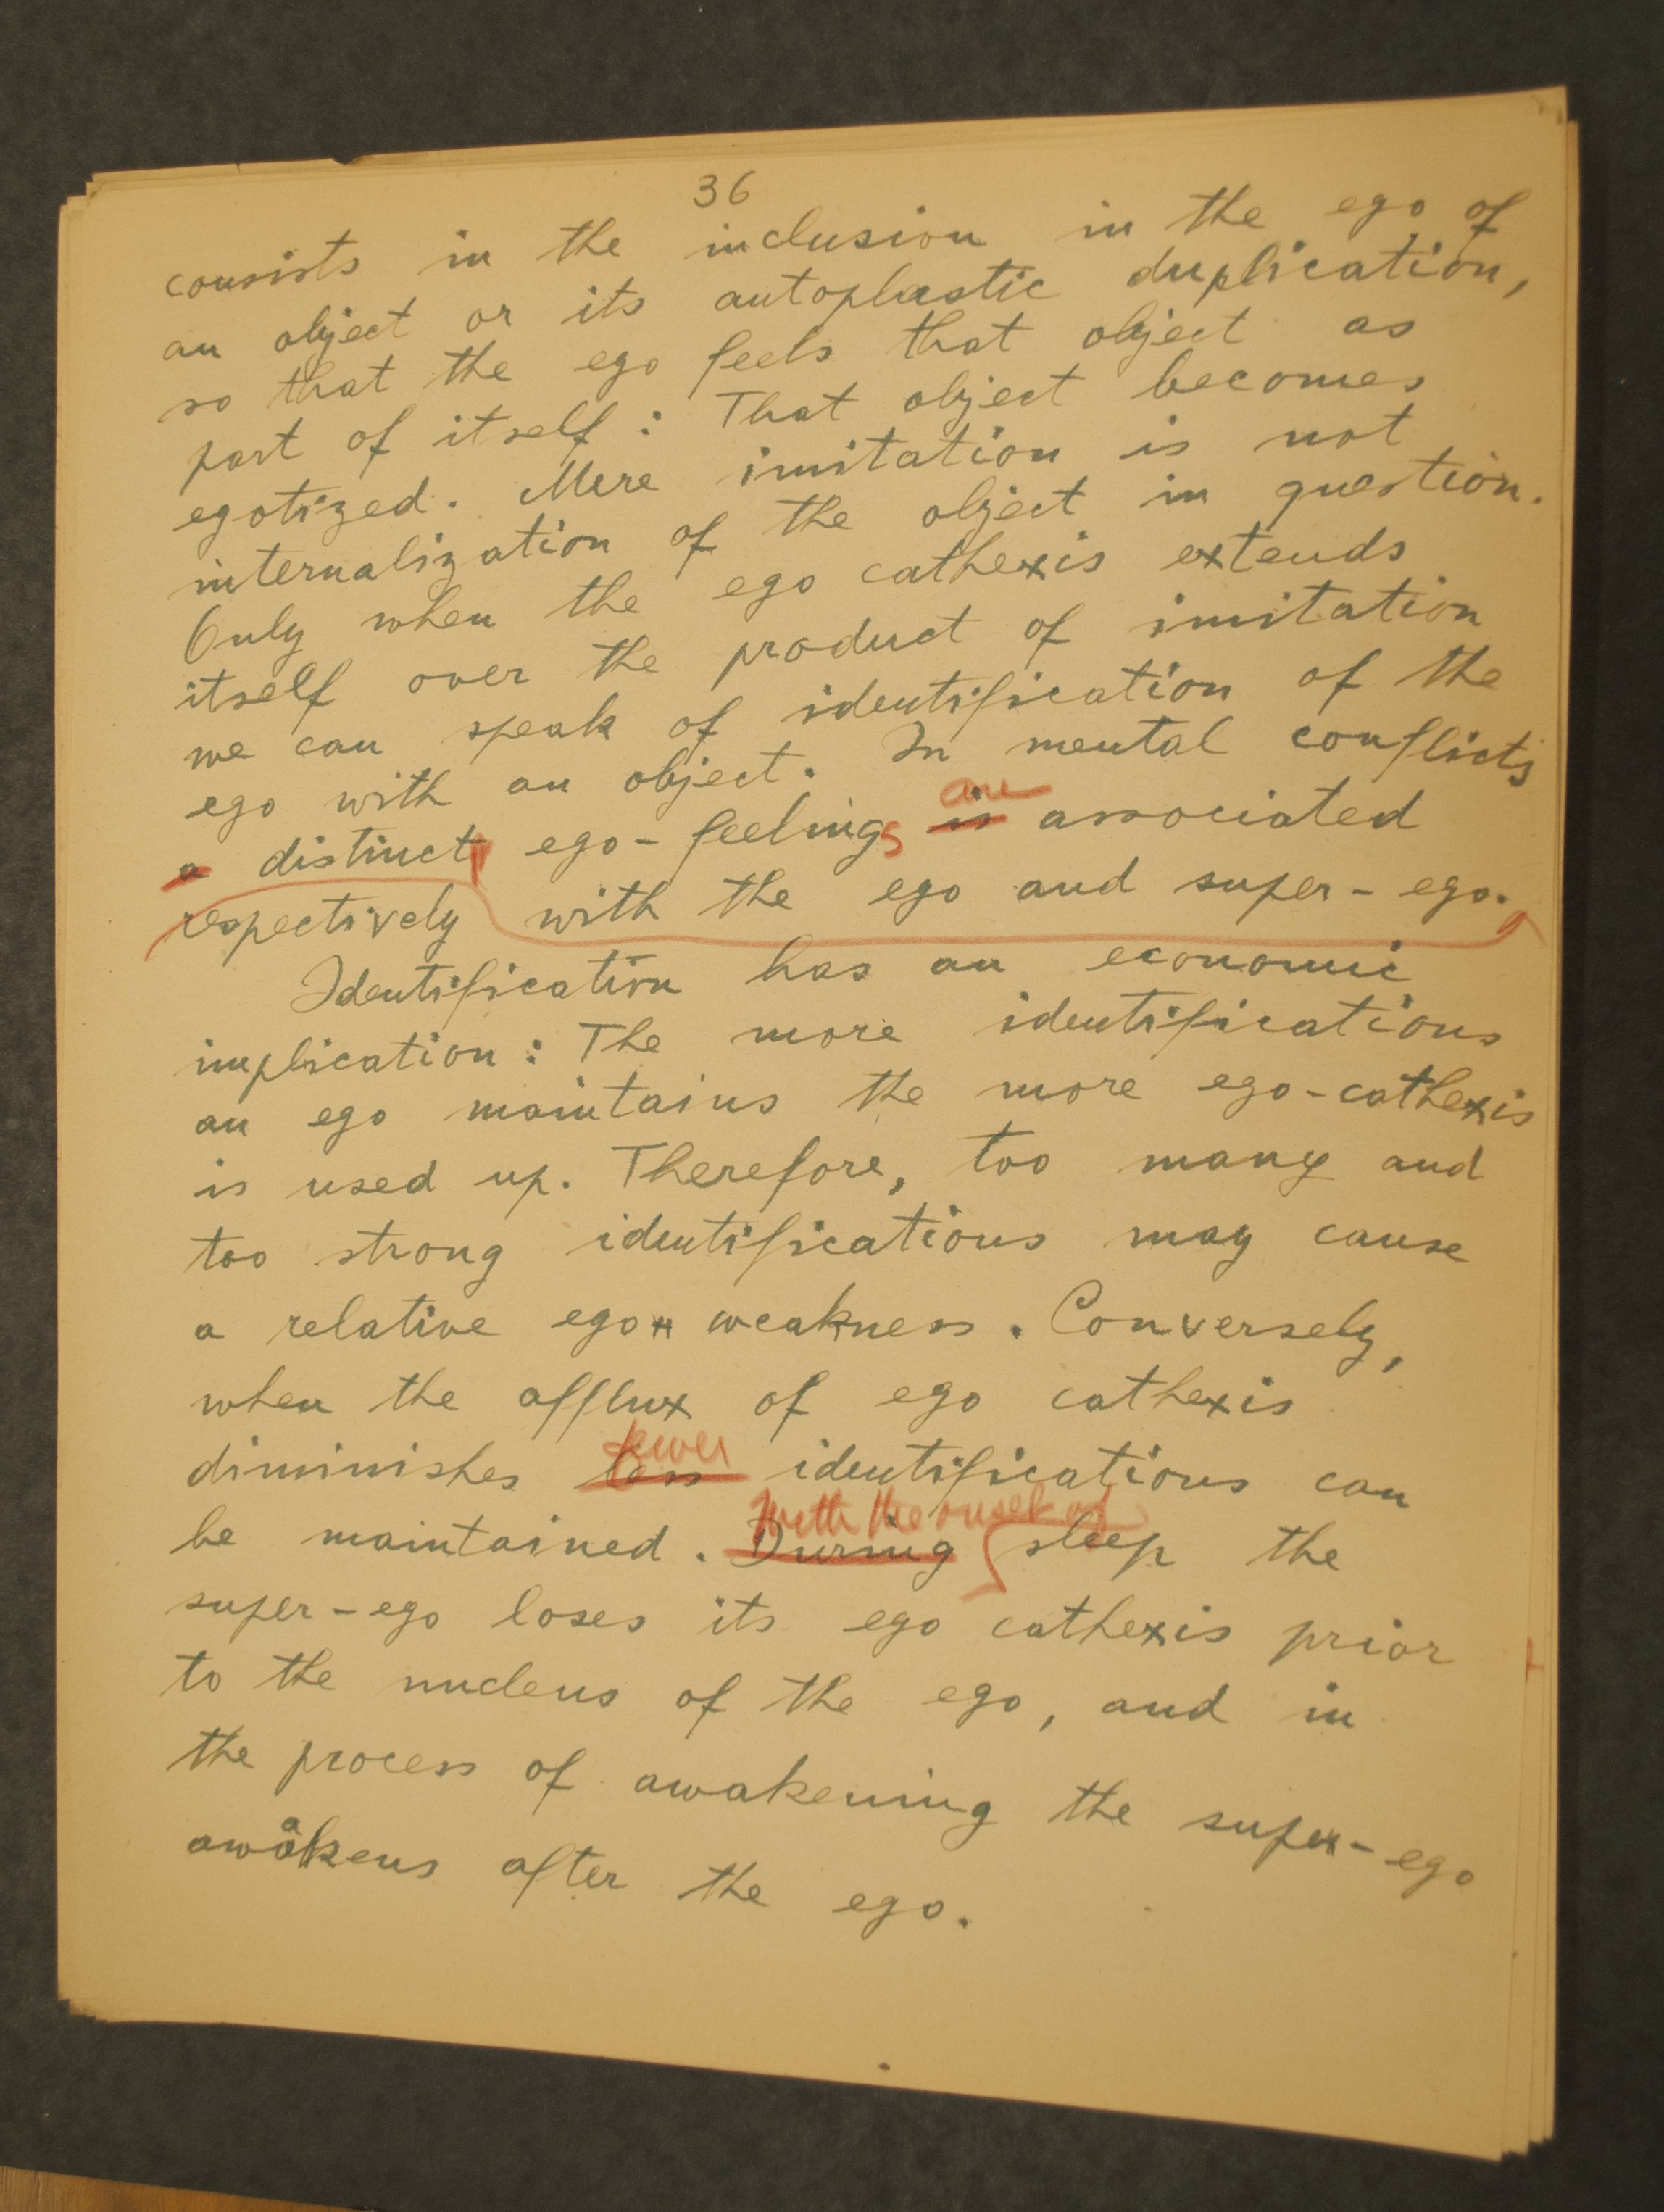 36
consists in the inclusion in the ego of
an object or its autoplastic duplication,
so that the ego feels that object as
part of itself : That object becomes
egotized. Mere imitation is not
internalization of the object in question.
Only when the ego cathexis extends
itself over the product of imitation
we can speak of identification of the
ego with an object. In mental conflicts
are
a distinct ego-feelings is associated
respectively with the ego and super-ego.
Identification has an economic
implication : The more identifications
an ego maintains the more ego-cathexis
is used up. Therefore, too many and
too strong identifications may cause
a relative ego weakness. Conversely,
when the afflux of ego cathexis
fewer
diminishes less identifications can
With the onset of
be maintained. During sleep the
super-ego loses its ego cathexis prior
to the nucleus of the ego, and in
the process of awakening the super-ego
awakens after the ego.